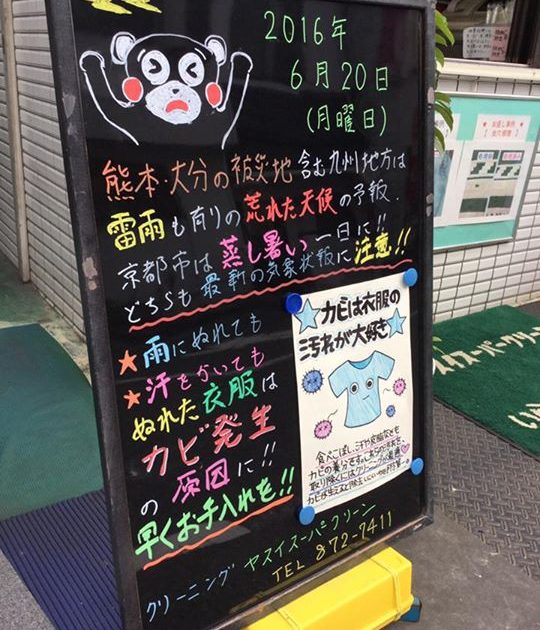 2016年
6月20日
(月曜日)
熊本・大分の被災地含む九州地方は
雷雨も有りの荒れた天候の予報.
京都市は蒸し暑い一日に!!
どちらも最新の気象状報に注意!!
★雨にぬれても
★汗をかいても
ぬれた衣服は
カビ発生
の原因に!!
早くお手入れを!!
カビは衣服の
汚れが大好き
食べこぼし、汗や皮脂なども
カビの養分
取り除くにはクリーニングが最適♡
クリーニング ヤスイスーパークリーン
TEL 872-7411
スイスーパークリー